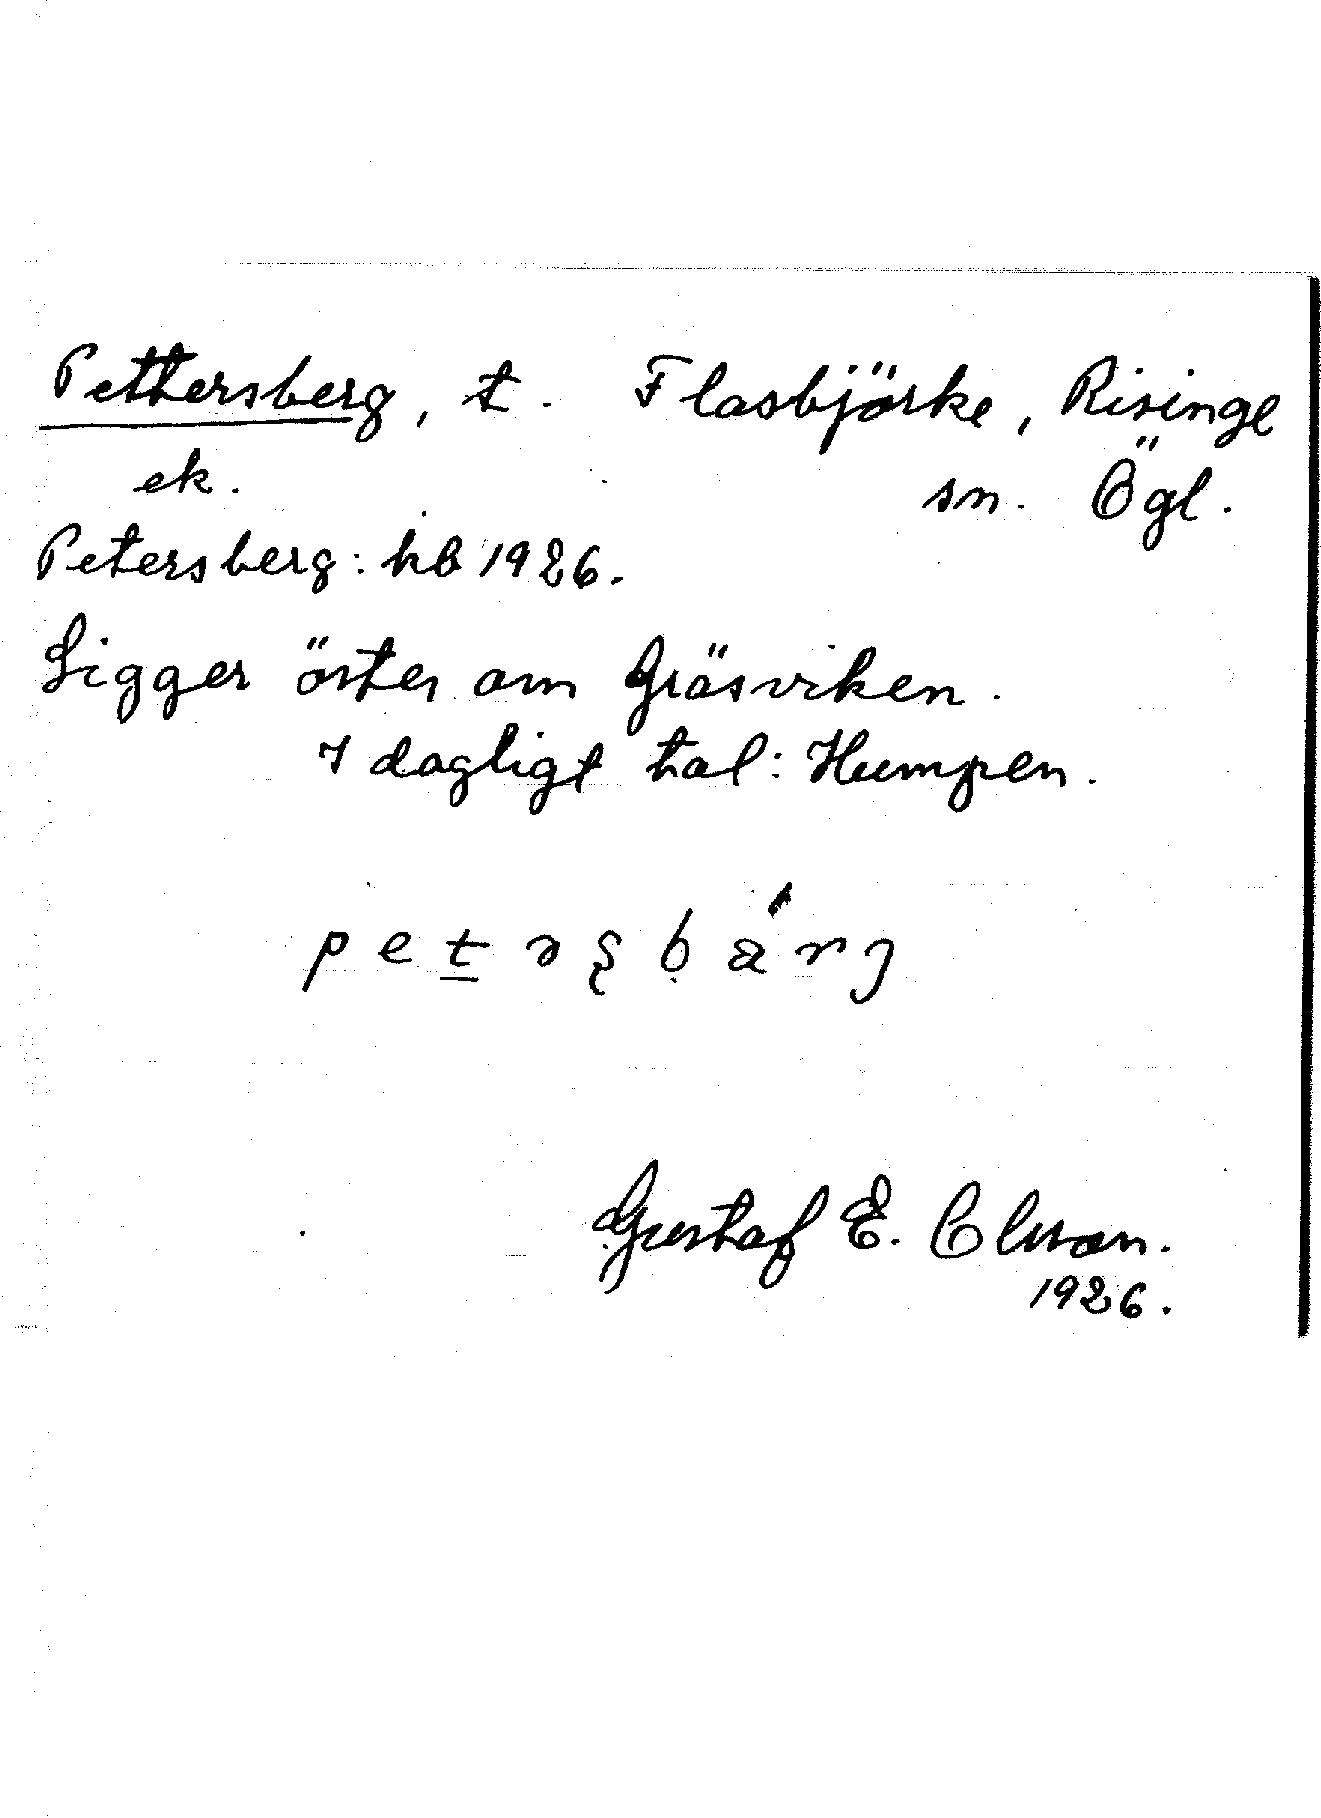 Pettersberg, t. Flasbjörke, Risinge
ek. sn. Ögl.
Petersberg: kb 1926.
Ligger öster om Gräsviken.
I dagligt tal: Humpen.
Gustaf E. Olsson.
1926.